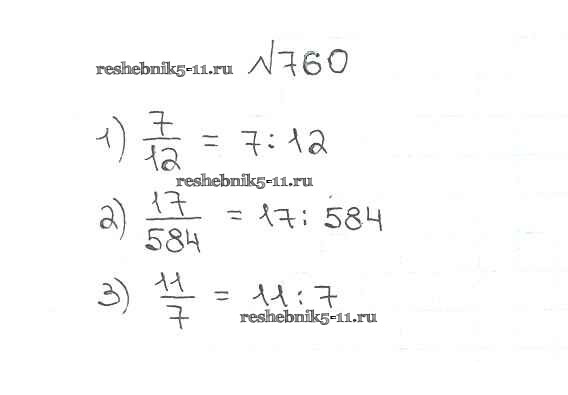 reshebnik5-11.ru №760
1) 7/12 = 7 : 12
reshebnik5-11.ru
2) 17/584 = 17 : 584
3) 11/7 = 11 : 7
reshebnik5-11.ru